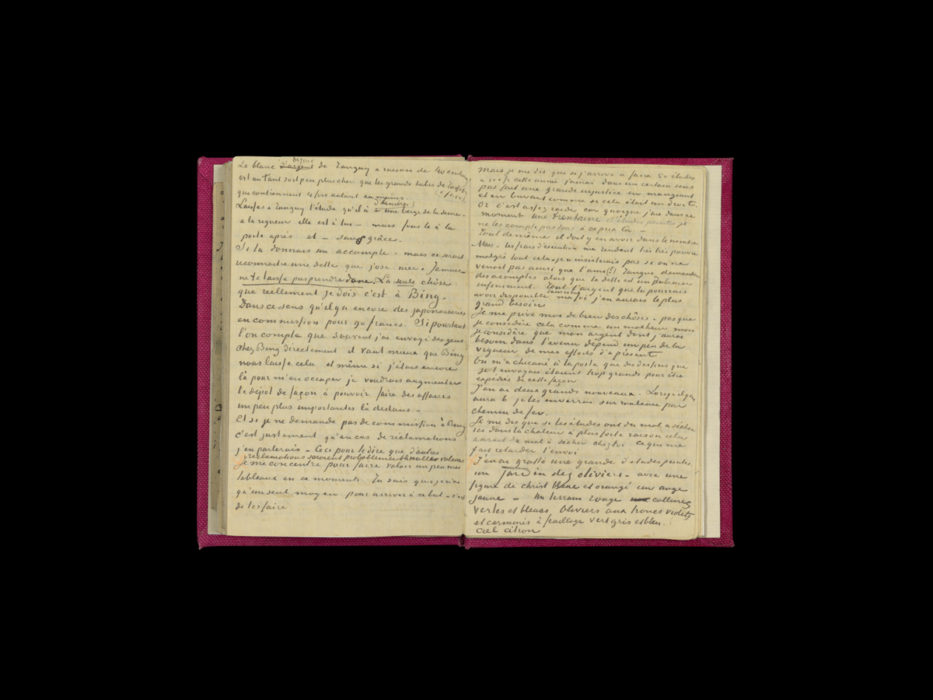 Le blanc d'argent de Tanguy à raison de 40 cent
est un tant soit peu plus cher que les grands tubes de Tasset
qui contiennent 4 fois autant au moins.
Laissez à Tanguy l'étude qu'il a
à la rigueur elle est à lui - mais fous le à la
porte après et - sans grâces.
Si tu donnais un accompte - mais ce serait
reconnaitre une dette que j'ose nier. Jamais
ne te laisse pas prendre donc. La seule chose
que réellement je dois c'est à Bing.
Dans ce sens qu'ils y a encore des japonaiseries
en commission pour 90 francs. Si pourtant
l'on compte que souvent j'ai envoyé des gens
chez Bing directement il vaut mieux que Bing
nous laisse cela et même si j'étais encore
là pour m'en occuper je voudrais augmenter
le dépot de façon à pouvoir faire des affaires
un peu plus importantes là dedans -
Et si je ne demande pas de commission à Bing
c'est justement qu'en cas de réclamations
j'en parlerais - Ceci pour te dire que d'autres
réclamations seraient probablement de meilleure valeur
Je me concentre pour faire valoir un peu mes
tableaux en ce moment. Tu sais que je n'ai
qu'un seul moyen pour arriver à ce but - c'est
de les faire
Mais je me dis que si j'arrive à faire 50 études
à 200 fr cette année j'aurai dans un certain sens
pas fait une grande injustice en mangeant
et en buvant comme si cela était un droit.
Or c'est assez raide car quoique j'ai dans ce
moment une trentaine d'études peintes je
ne les compte pas tous à ce prix là -
Tout de même il doit y en avoir dans le nombre
Mais les frais d'exécution me rendent très très pauvre
malgré tout cela je n'insisterais pas si on ne
venait pas aussi que l'ami (!) Tanguy demander
des accomptes alors que la dette est en plein
infiniment. Tout l'argent que tu pourrais
avoir disponible j'en aurais le plus
grand besoin
Je me prive moi de bien des choses - pas que
je considère cela comme un malheur mais
je considère que mon argent dont j'aurai
besoin dans l'avenir dépend un peu de la
vigueur de mes efforts d'à présent
On m'a chicané à la poste que des dessins que
je t'envoyais étaient trop grands pour être
expédiés de cette façon
J'en ai deux grands nouveaux. Lorsqu'il y en
aura 6 je les enverrai sur rouleau par
chemin de fer.
Je me dis que si les études ont du mal à sécher
ici dans la chaleur à plus forte raison cela
aurait du mal à sécher chez toi ce qui me
fait retarder l'envoi
J'en ai gratté une grande d'études peintes
un jardin des oliviers - avec une
figure de christ bleue et orangé un ange
jaune - Un terrain rouge collines
vertes et bleues. Oliviers aux troncs violets
et carminés à feuillage vert gris et bleu
ciel citron